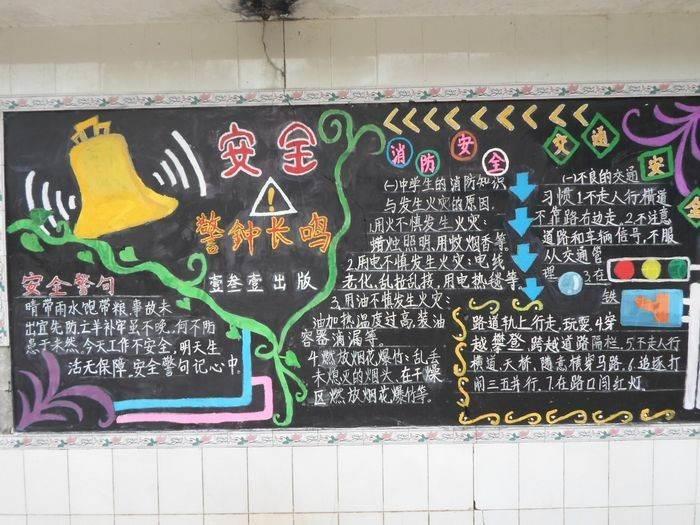 安全
警钟长鸣
壹叁壹出版
安全警句
晴带雨水饱带粮,事故未
出宜先防亡羊补牢虽不晚,何不防
患于未然,今天工作不安全,明天生
活无保障,安全警句记心中.
消防安全
(一)中学生的消防知识
与发生火灾的原因.
1.用火不慎发生火灾:
蜡烛照明,用蚊烟香等.
2.用电不慎发生火灾:电线
老化,乱拉乱拔,用电热毯等.
3.用油不慎发生火灾:
油加热温度过高,装油
容器滴漏等。
4.燃放烟花爆竹:乱丢
未熄灭的烟头,在干燥
区燃放烟花爆竹等.
交通安全
(一)不良的交通
习惯1.不走人行横道
不靠路右边走,2.不注意
道路和车辆信号,不服
从交通管
理 3.在
铁
路道轨上行走,玩耍.4.穿
越攀登 跨越道路隔栏.5.不走人行
横道、天桥,随意横穿马路.6.追逐打
闹三五并行.7.在路口闯红灯.